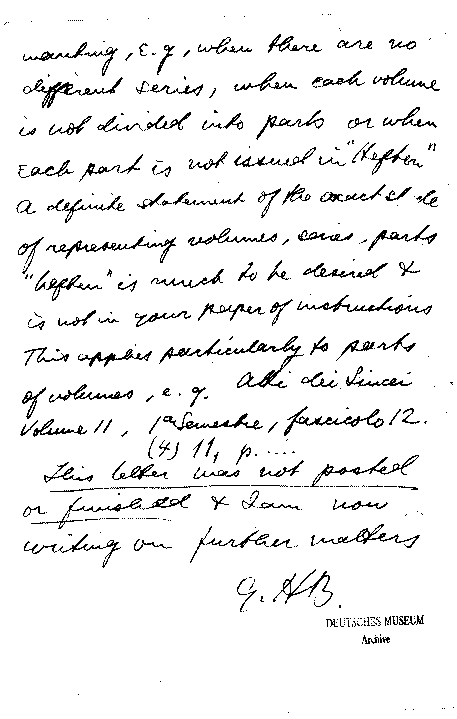 wanting, e.g., when there are no
different series, when each volume
is not divided into parts or when
each part is not issued in "Heften"
A definite statement of the exact st le
of representing volumes, series, parts
"heften" is much to be desired &
is not in your paper of instructions
This applies particularly to parts
of volumes, e.g. Atti dei Lincei
Volume 11, 1ª Semestre, fascicolo 12.
(4) 11, p......
This letter was not posted
or finished & I am now
writing on further matters
G. H B.
DEUTSCHES MUSEUM
Archive